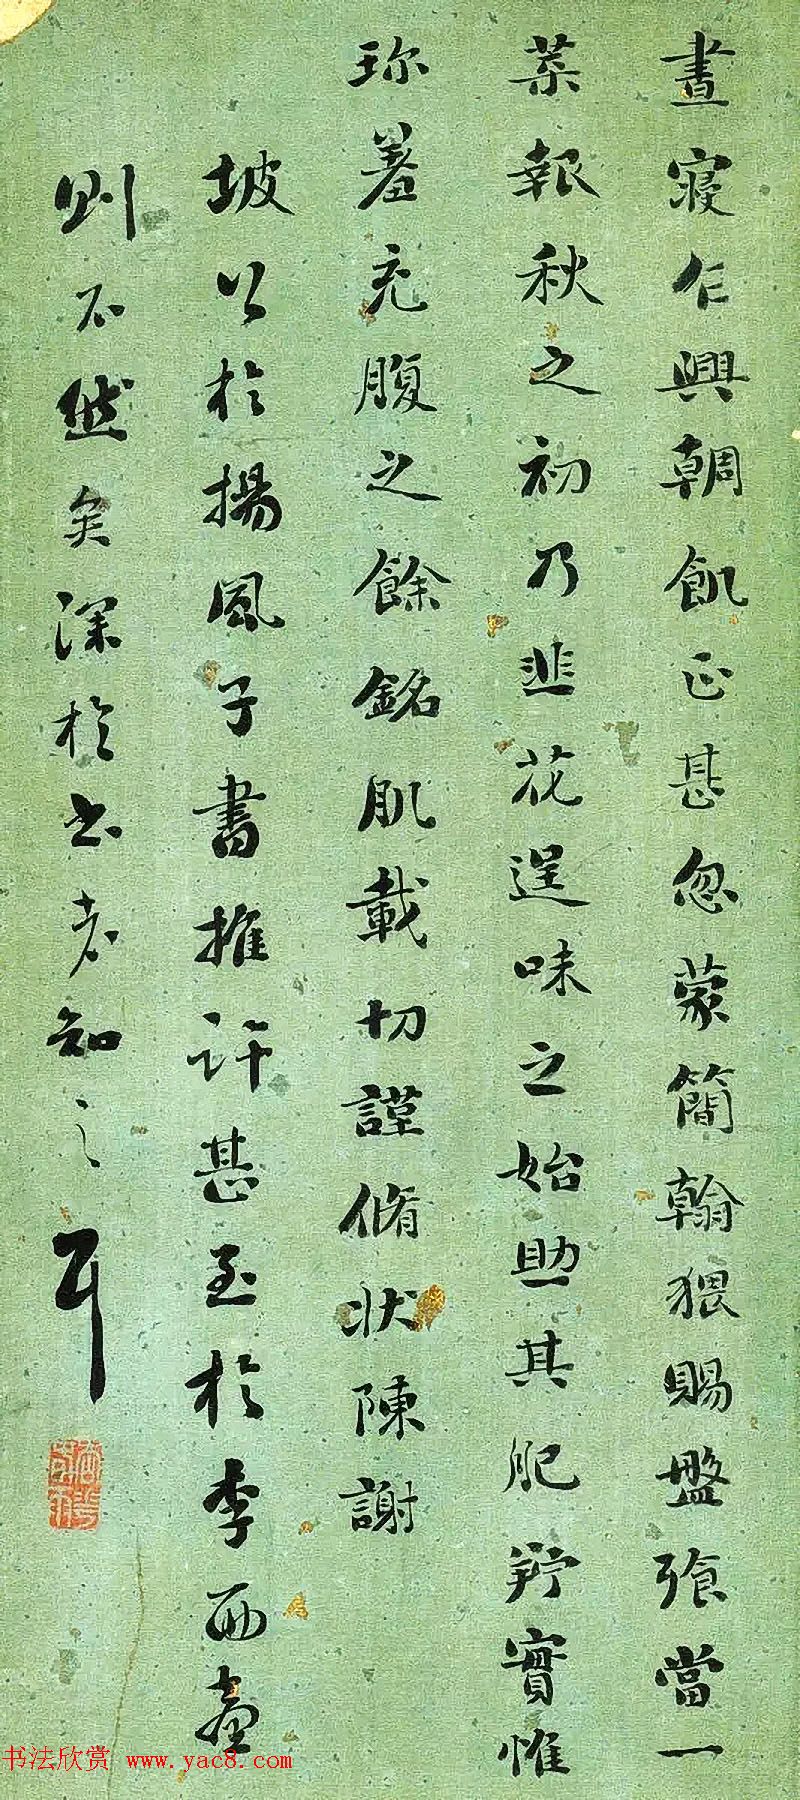 晝寢乍興朝飢正甚忽蒙簡翰猥賜盤飡當一
葉報秋之初乃韭花逞味之始助其肥羜實惟
珎羞充腹之餘銘肌載切謹脩狀陳謝
坡公於揚風子書推許甚至於李西臺
則不然矣深於书者知之耳
书法欣赏 www.yac8.com